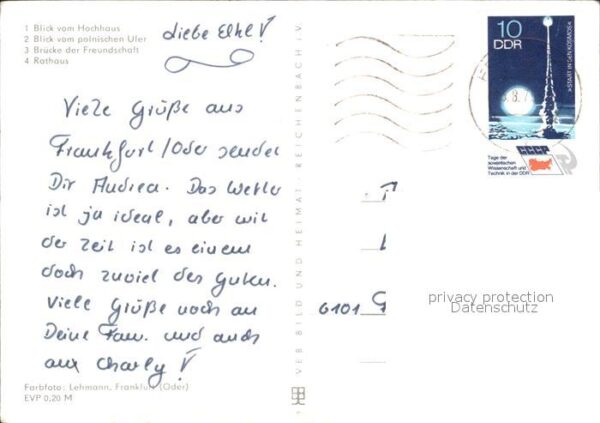 1 Blick vom Hochhaus
2 Blick vom polnischen Ufer
3 Brücke der Freundschaft
4 Rathaus
Liebe Elke!
Viele Grüße aus
Frankfurt/Oder sendet
Dir Andrea. Das Wetter
ist ja ideal, aber mit
der Zeit ist es einem
doch zuviel des guten.
Viele Grüße noch an
Deine Fam. und auch
an Charly!
Farbfoto: Lehmann, Frankfurt (Oder)
EVP 0,20 M
VEB BILD UND HEIMAT · REICHENBACH i. V.
10
DDR
»START IN DEN KOSMOS«
CCCP
Tage der
sowjetischen
Wissenschaft und
Technik in der DDR
6101 G
privacy protection
Datenschutz